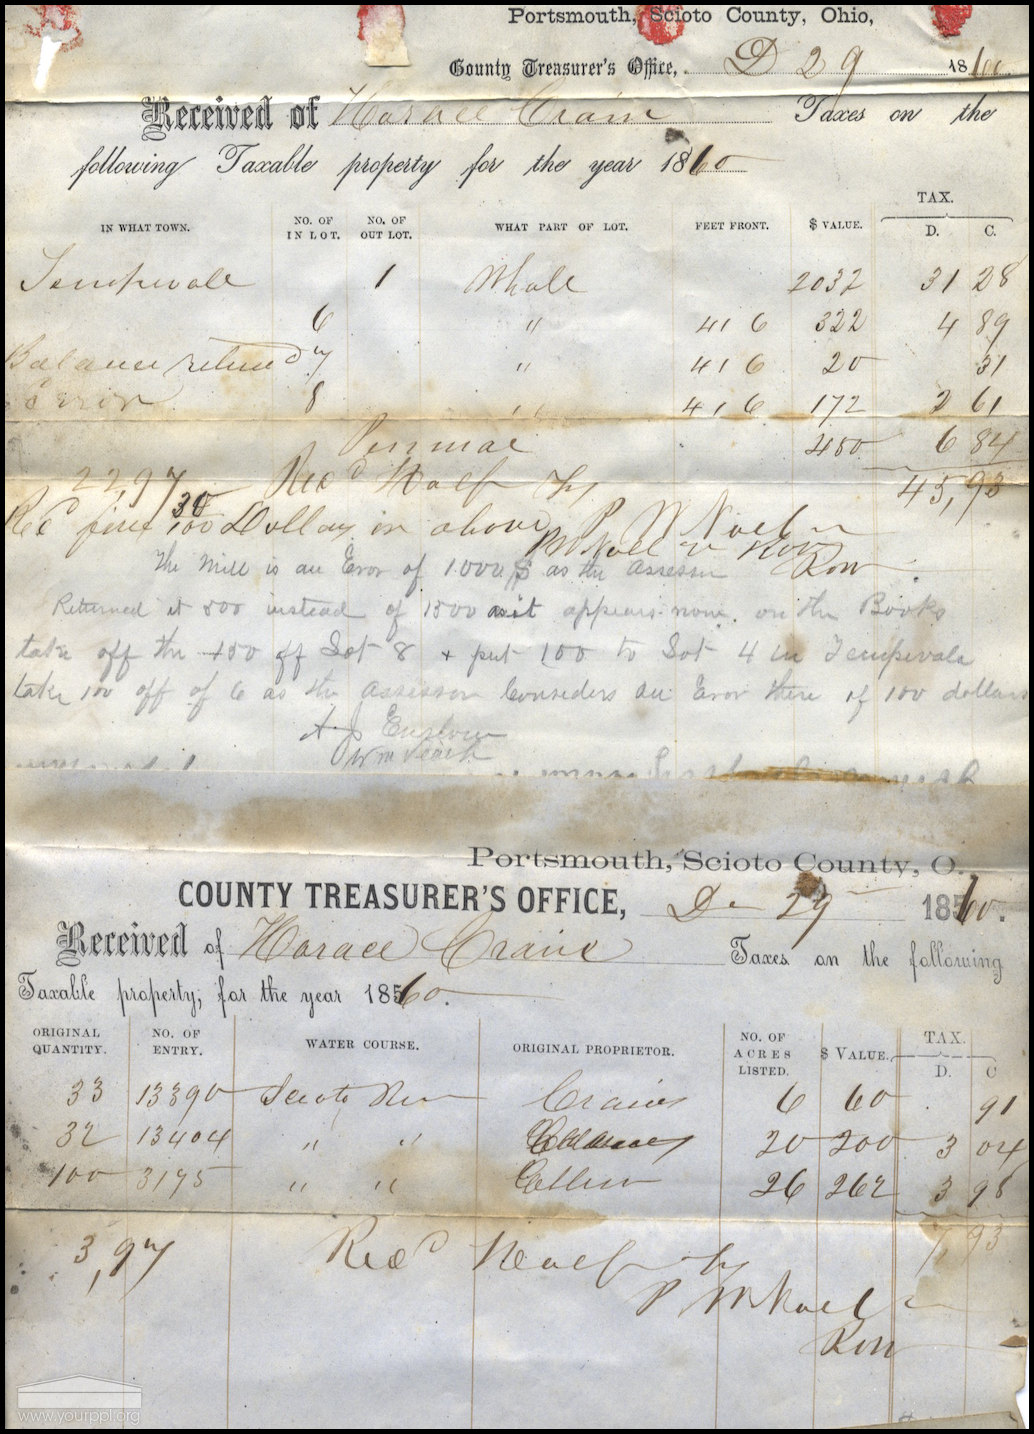 Portsmouth, Scioto County, Ohio,
County Treasurer's Office, D 29 1860
Received of Horace Crain Taxes on the
following Taxable property for the year 1860
TAX.
IN WHAT TOWN. NO. OF IN LOT. NO. OF OUT LOT. WHAT PART OF LOT. FEET FRONT. $ VALUE. D. C.
Tempervale 1 Whole 2032 31 28
6 " 416 322 4 89
Balance 7 " 416 20 31
Error 8 " 416 172 2 61
450 6 84
22,97 Recd Half by 45,93
Recd five 30/100 Dollars in above
The Mill is an Eror of 1000 $ as the assessor
Returned it 500 instead of 1500 as it appears now on the Books
take off the 150 off Lot 8 + put 100 to Lot 4 in Tempervale
take 100 off of 6 as the assessor Considers an Eror there of 100 dollars
A J Enslow
Portsmouth, Scioto County, O.
COUNTY TREASURER'S OFFICE, De 29 1860.
Received of Horace Crain Taxes on the following
Taxable property, for the year 1860.
ORIGINAL QUANTITY. NO. OF ENTRY. WATER COURSE. ORIGINAL PROPRIETOR. NO. OF ACRES LISTED. $ VALUE. TAX. D. C
33 13390 Scioto River Crain 6 60 91
32 13404 " " 20 200 3 04
100 3175 " " 26 262 3 98
3,97 Recd Half by 7 93
www.yourppl.org